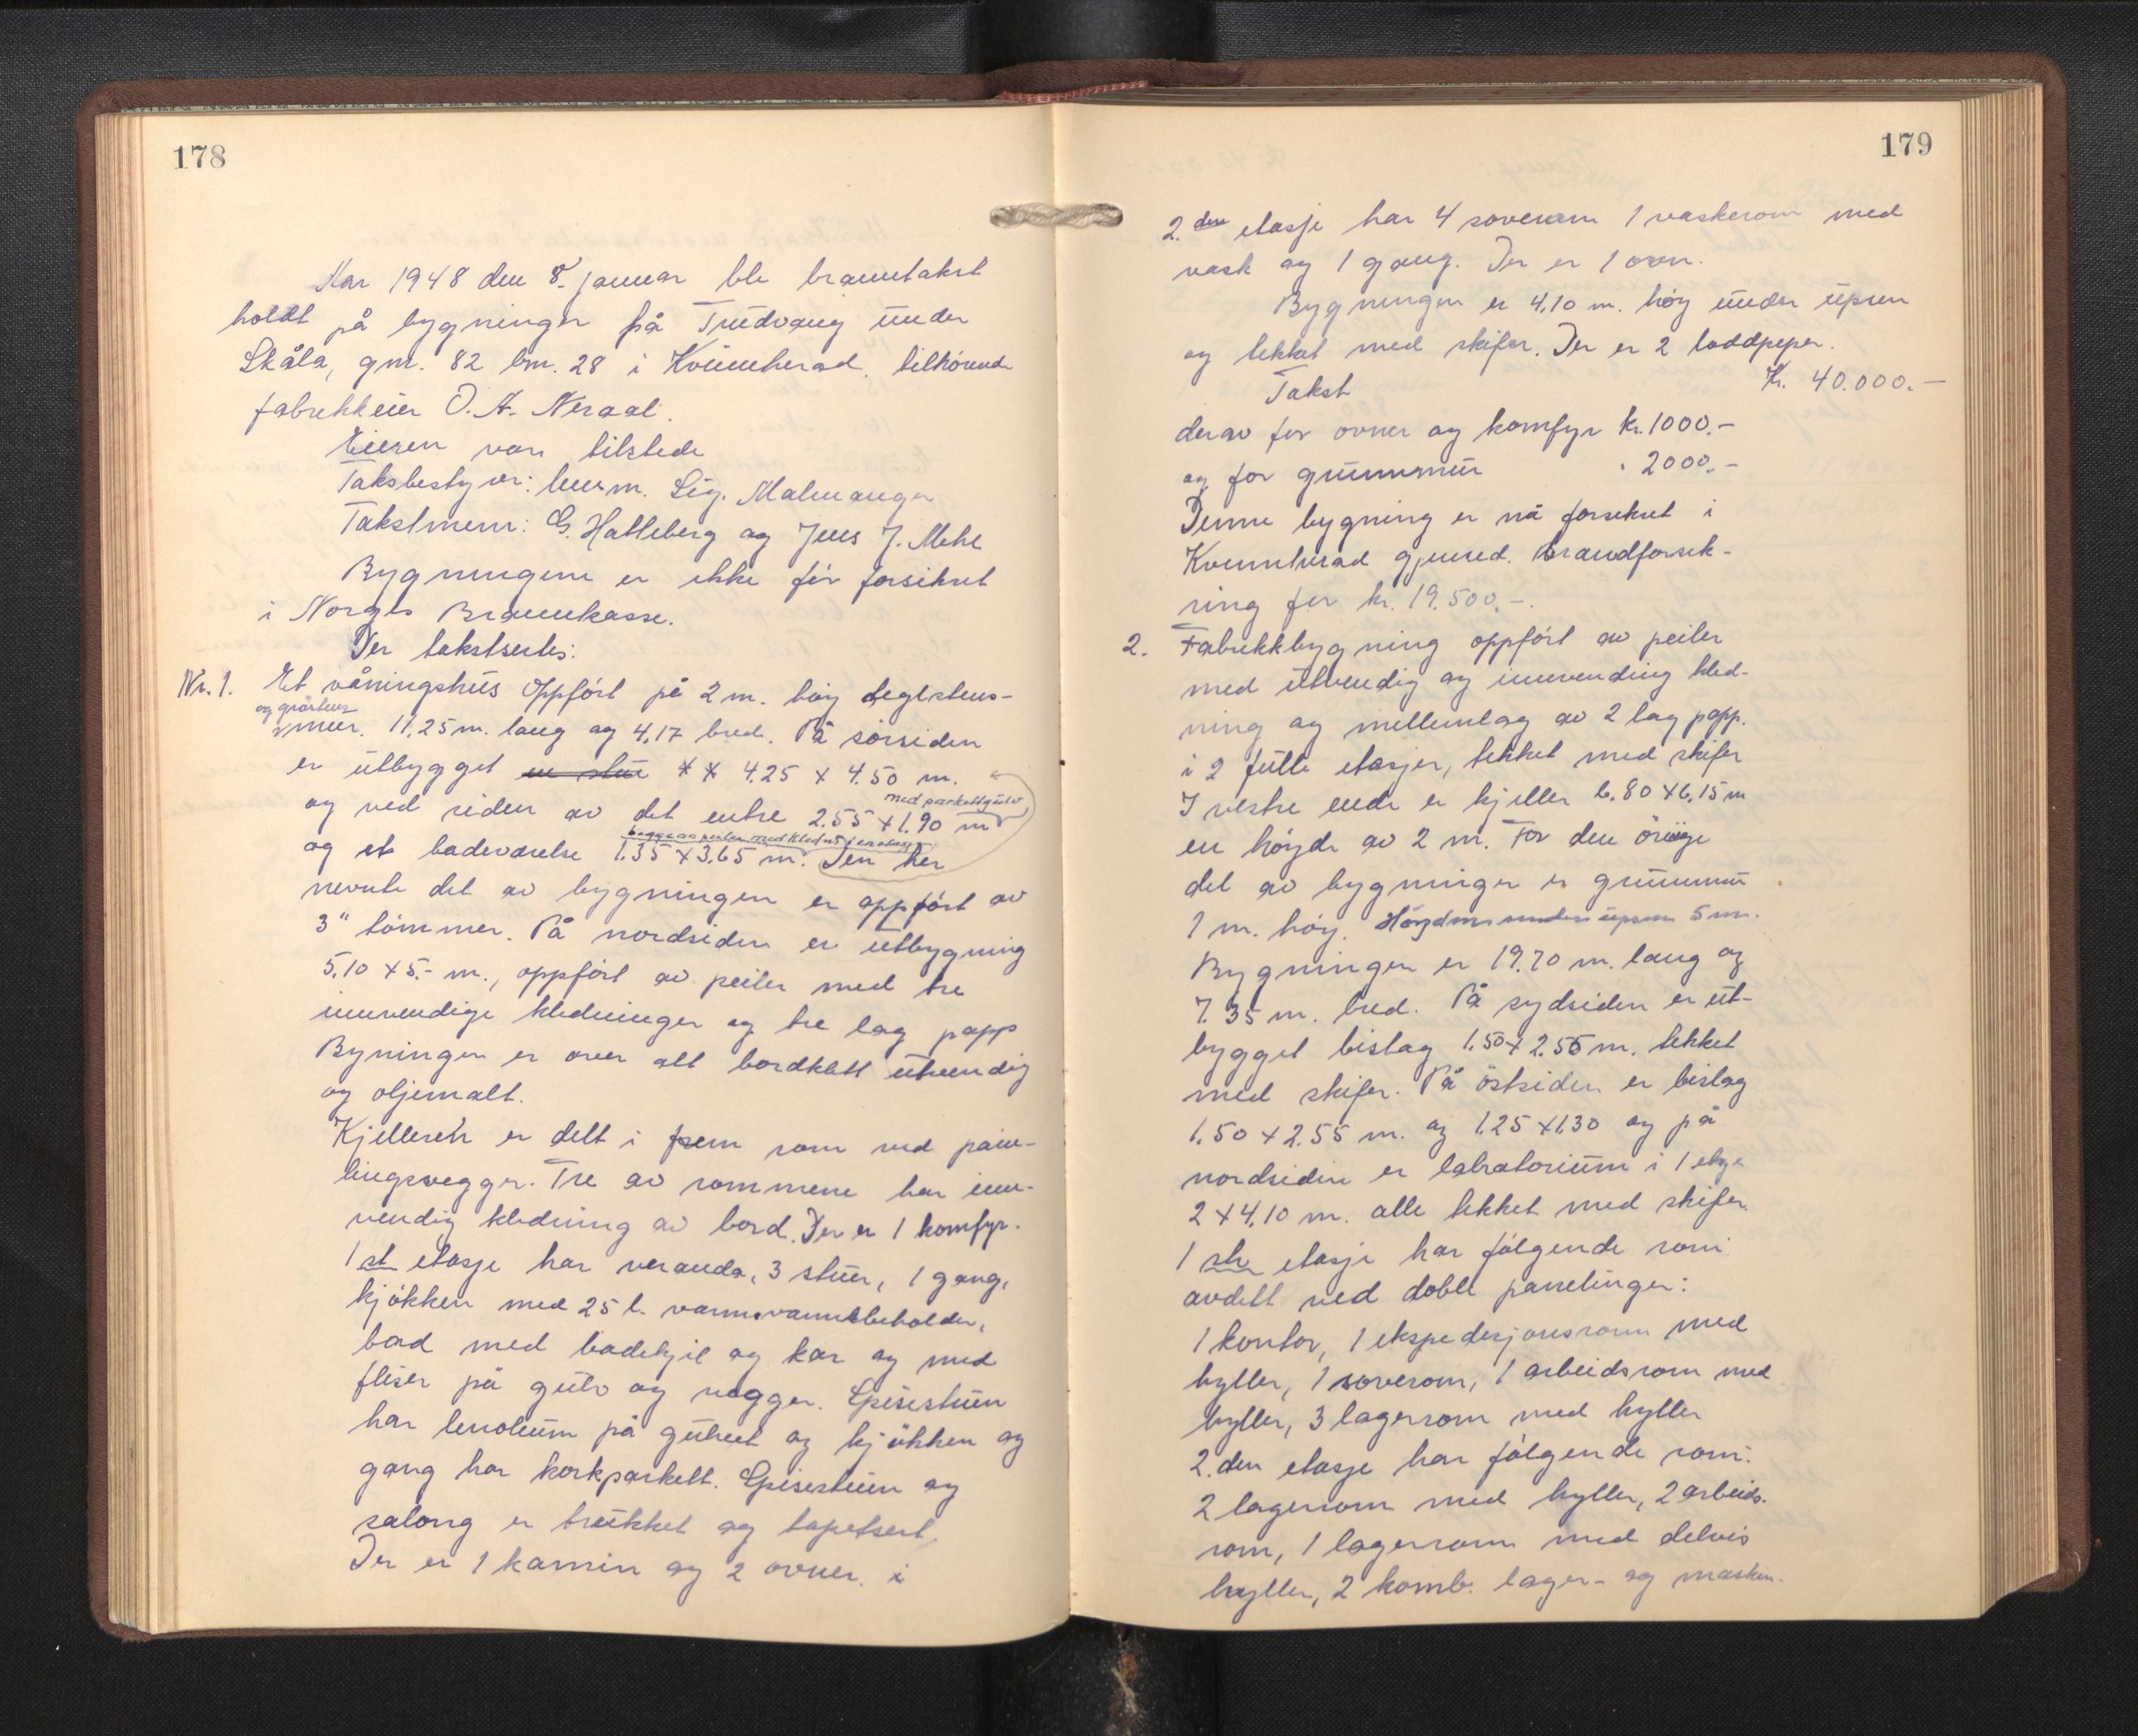 178
Aar 1948 den 8. januar ble branntakst
holdt på bygninger på Trudvang under
Skåla, gnr. 82 bnr. 28 i Kvinnherad, tilhörende
fabrikkeier O. A. Neraal.
Eieren var tilstede
Takstbestyrer: lensm. Sig. Malmanger
Takstmenn: G. Hatleberg og Jens J. Mehl
Bygningene er ikke för forsikret
i Norges Brannkasse.
Der takstsertes:
Nr. 1. Et våningshus Oppfört på 2 m. höy teglstens-
og gråstens
mur. 11,25 m. lang og 4,17 bred. På sörsiden
er utbygget en stue 4.25 x 4.50 m.
med parkettgulv
og ved siden av det entre 2.55 x 1.90 m
begge av peiler med kledn
og et badeværelse 1.35 x 3.65 m. Den her
nevnte del av bygningen er oppfört av
3" tömmer. På nordsiden er utbygning
5,10 x 5.- m., oppfört av peiler med tre
innvendige kledninger og tre lag papp
Byningen er over alt bordkledt utvendig
og oljemalt.
Kjelleren er delt i fem rom ved pane-
lingsvegger. Tre av rommene har inn-
vendig kledning av bord. Der er 1 komfyr.
1 st etasje har veranda, 3 stuer, 1 gang,
kjökken med 25 l. varmvannsbeholder,
bad med badekjel og kar og med
fliser på gulv og vegger. Spisestuen
har linoleum på gulvet og kjökken og
gang har korkparkett. Spisestuen og
salong er trukket og tapetsert.
Der er 1 kamin og 2 ovner. i
179
2. den etasje har 4 soverom 1 vaskerom med
vask og 1 gang. Der er 1 ovn.
Bygningen er 4,10 m. höy under upsen
og tekket med skifer. Der er 2 loddpiper.
Takst Kr. 40.000.-
derav for ovner og komfyr kr. 1000.-
og for grunnmur " 2000.-
Denne bygning er nå forsikret i
Kvinnherad gjensid. Brandforsik-
ring for kr. 19.500.-.
2. Fabrikkbygning oppfört av peiler
med utvendig og innvendig kled-
ning og mellemlag av 2 lag papp.
i 2 fulle etasjer, tekket med skifer
I vestre ende er kjeller 6.80 x 6,15 m
en höyde av 2 m. For den övrige
del av bygningen er grunnmur
1 m. höy. Höyden under upsen 5 m.
Bygningen er 19.70 m. lang og
7.35 m. bred. På sydsiden er ut-
bygget bislag 1.50 x 2.55 m. tekket
med skifer. På östsiden er bislag
1.50 x 2.55 m. og 1.25 x 1.30 og på
nordsiden er labratorium i 1 etasje
2 x 4,10 m. alle tekket med skifer.
1 ste etasje har fölgende rom:
avdelt ved doble panelinger:
1 kontor, 1 ekspedisjonsrom med
hyller, 1 soverom, 1 arbeidsrom med
hyller, 3 lagerrom med hyller
2. den etasje har fölgende rom:
2 lagerrom med hyller, 2 arbeids-
rom, 1 lagerrom med delvis
hyller, 2 komb. lager- og maskin-